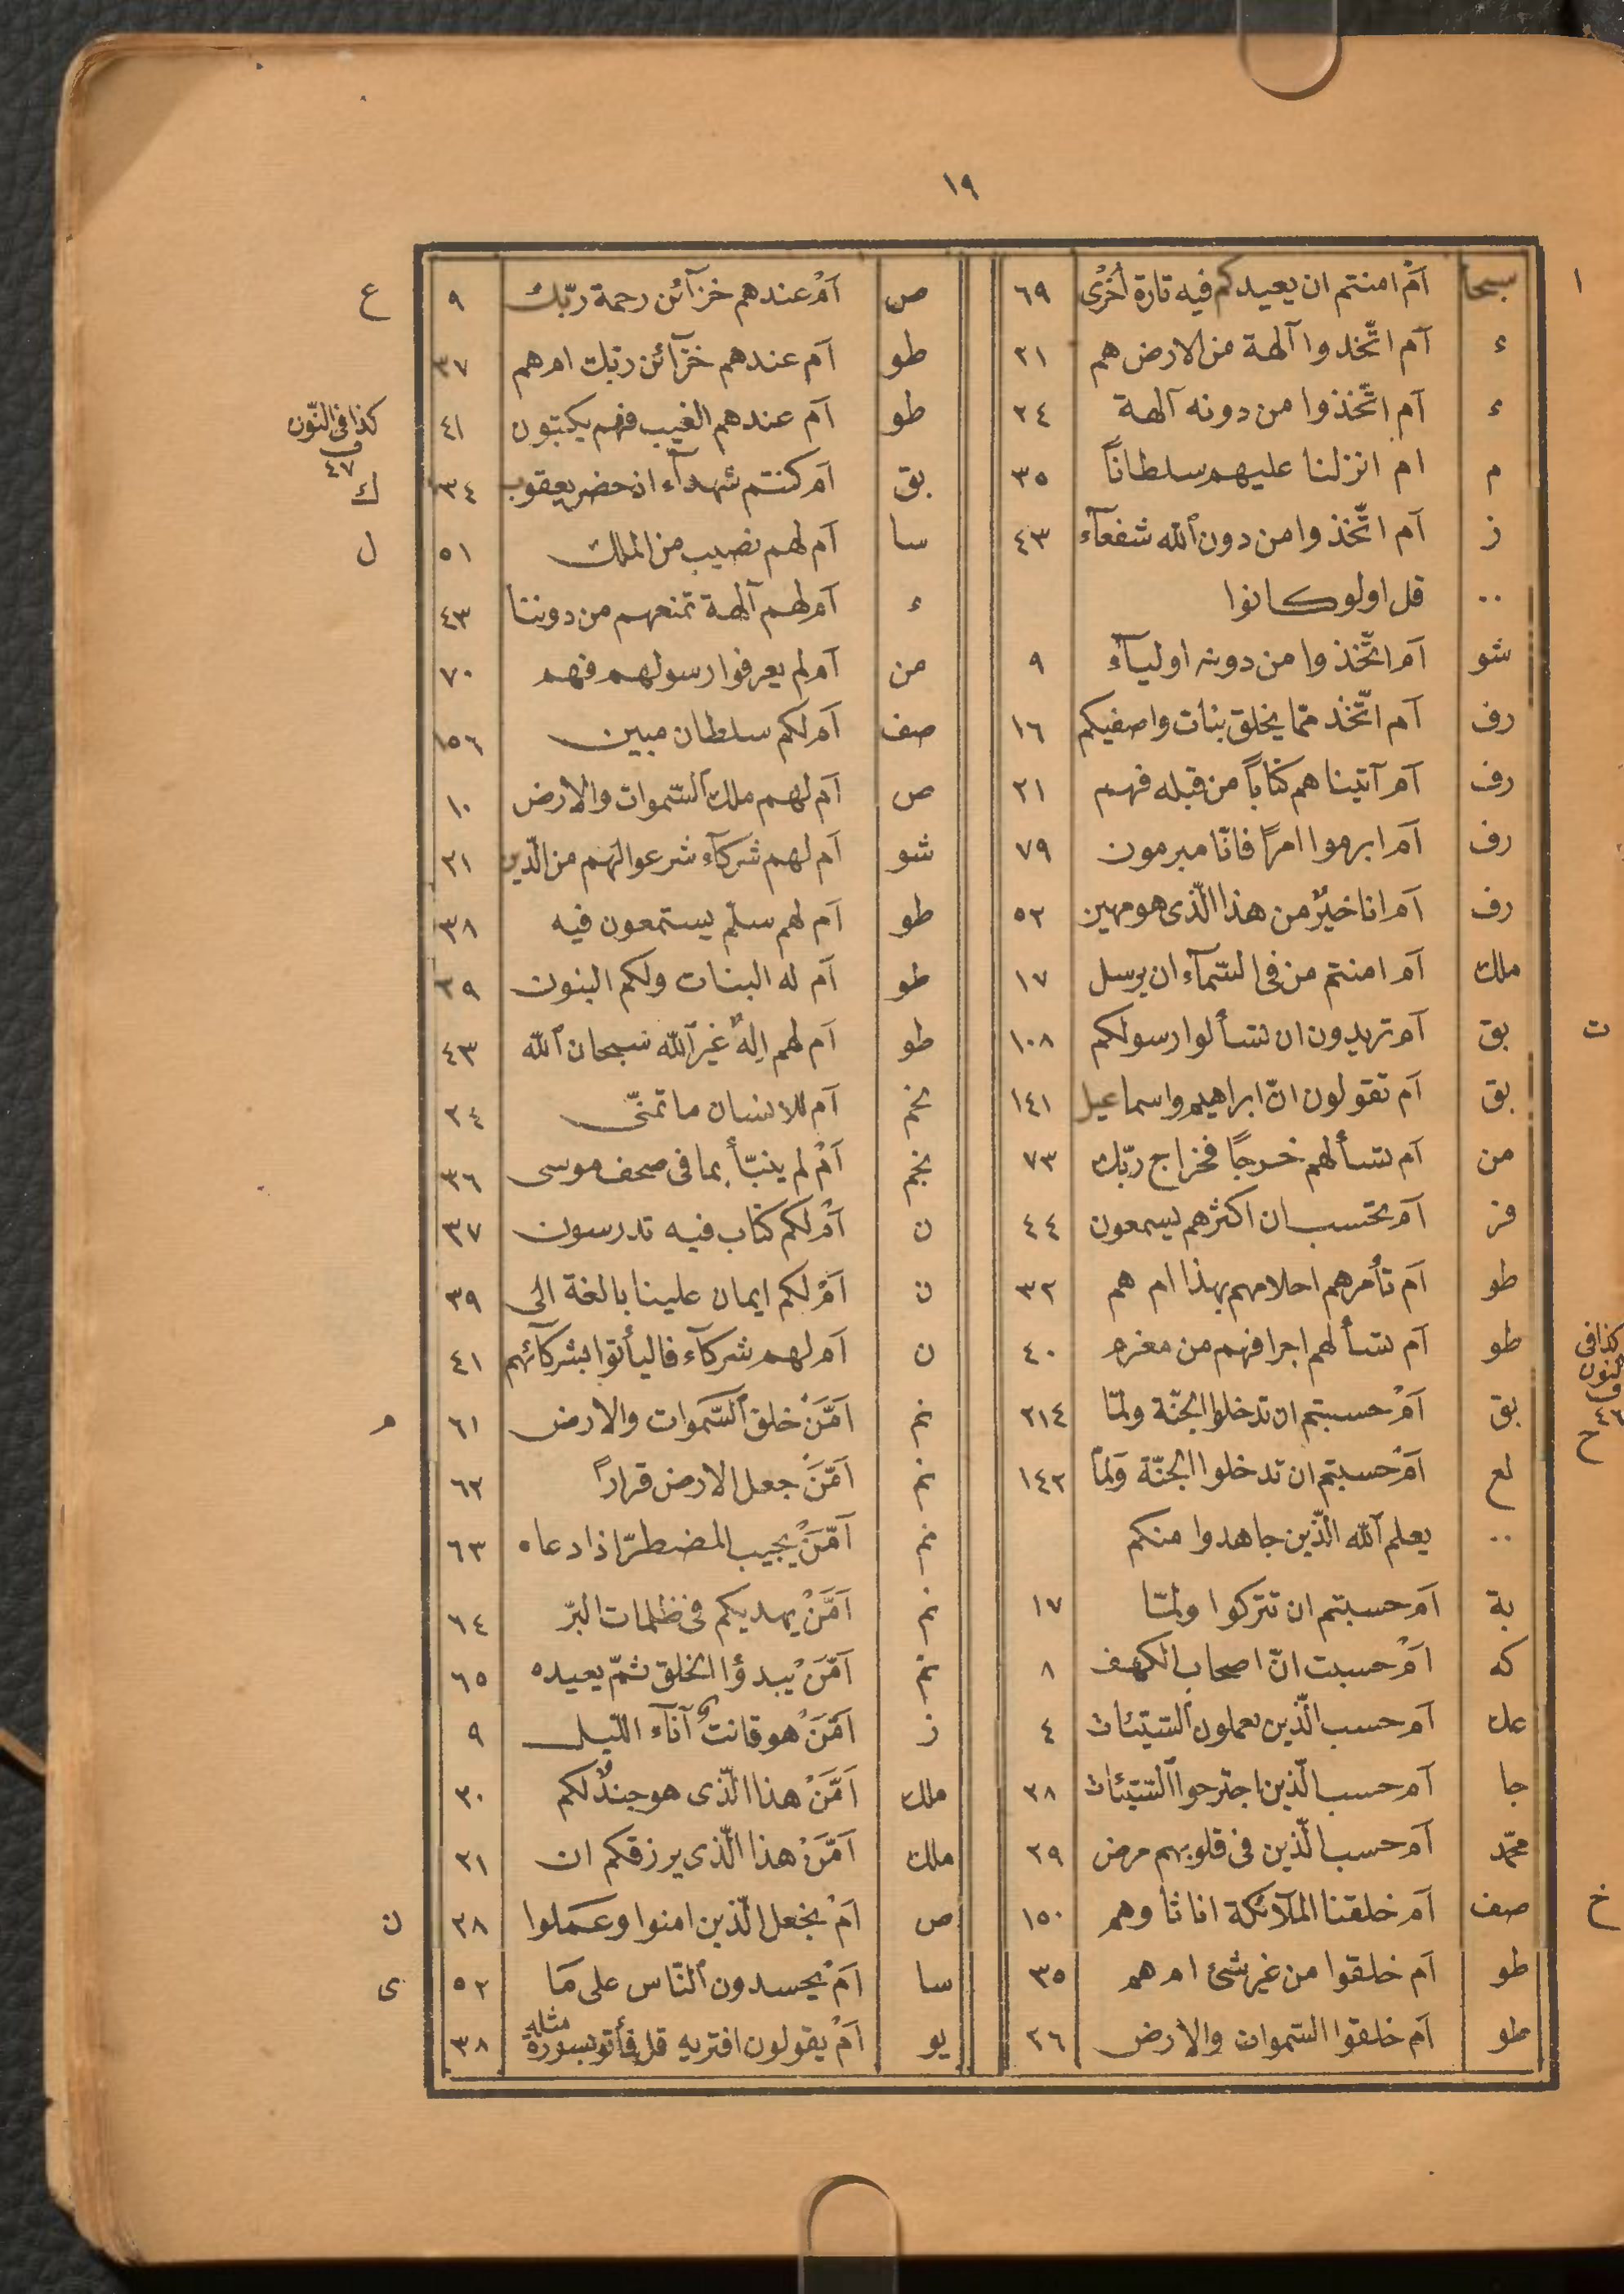 ١٩
ا
سبحا ام امنتم ان يعيدكم فيه تارة اخرى ٦٩
ء ام اتّخذوا آلهة من الارض هم ٢١
ء ام اتّخذوا من دونه آلهة ٢٤
م ام انزلنا عليهم سلطاناً ٣٥
ز ام اتّخذوا من دون الله شفعآء ٤٣
.. قل اولو كانوا
شو ام اتّخذوا من دونه اوليآء ٩
رف ام اتّخذ ممّا يخلق بنات واصفيكم ١٦
رف ام آتيناهم كتاباً من قبله فهم ٢١
رف ام ابرموا امراً فانّا مبرمون ٧٩
رف ام انا خيرٌ من هذا الّذى هو مهين ٥٢
ملك ام امنتم من فى السّمآء ان يرسل ١٧
ت
بق ام تريدون ان تسألوا رسولكم ١٠٨
بق ام تقولون انّ ابراهيم واسماعيل ١٤١
من ام تسألهم خرجاً فخراج ربّك ٧٣
فر ام تحسب ان اكثرهم يسمعون ٤٤
طو ام تأمرهم احلامهم بهذا ام هم ٣٢
كذا فى النون ف ٤٦
طو ام تسألهم اجرا فهم من مغرم ٤٠
ح
بق امْ حسبتم ان تدخلوا الجنّة ولمّا ٢١٤
لع امْ حسبتم ان تدخلوا الجنّة ولمّا ١٤٢
.. يعلم الله الّذين جاهدوا منكم
بة ام حسبتم ان تتركوا ولمّا ١٧
كه امْ حسبت انّ اصحاب الكهف ٨
عك ام حسب الّذين يعملون السّيّئات ٤
جا ام حسب الّذين اجترحوا السّيّئات ٢٨
محمّد ام حسب الّذين فى قلوبهم مرض ٢٩
خ
صف ام خلقنا الملآئكة اناثا وهم ١٥٠
طو ام خلقوا من غير شئ ام هم ٣٥
طو ام خلقوا السّموات والارض ٣٦
ص امْ عندهم خزآئن رحمة ربّك ٩ ع
طو ام عندهم خزآئن ربّك ام هم ٣٧
طو ام عندهم الغيب فهم يكتبون ٤١ كذا فى النّون ف ٤٧
بق ام كنتم شهدآء اذ حضر يعقوب ١٣٤ ك
سا ام لهم نصيب من الملك ٥١ ل
ء ام لهم آلهة تمنعهم من دوننا ٤٣
من ام لم يعرفوا رسولهم فهم ٧٠
صف ام لكم سلطان مبين ١٥٦
ص ام لهم ملك السّموات والارض ١٠
شو ام لهم شركآء شرعوا لهم من الّدين ٢١
طو ام لهم سلّم يستمعون فيه ٣٨
طو ام له البنات ولكم البنون ٣٩
طو ام لهم الهٌ غير الله سبحان الله ٤٣
نجم ام للانسان ما تمنّى ٢٤
نجم امْ لم ينبّأ بما فى صحف موسى ٣٦
ن امْ لكم كتاب فيه تدرسون ٣٧
ن امْ لكم ايمان علينا بالغة الى ٣٩
ن ام لهم شركآء فاليأتوا بشركآئهم ٤١
نم امّنْ خلق السّموات والارض ٦١ م
نم امّنْ جعل الارض قراراً ٦٢
نم امّنْ يجيب المضطرّ اذا دعاه ٦٣
نم امّنْ يهديكم فى ظلمات البرّ ٦٤
نم امّنْ يبدؤا الخلق ثمّ يعيده ٦٥
ز امّنْ هو قانتٌ آنآء اللّيل ٩
ملك امّنْ هذا الّذى هو جندٌ لكم ٢٠
ملك امّنْ هذا الّذى يرزقكم ان ٢١
ص امْ نجعل الّذين امنوا وعملوا ٢٨ ن
سا امْ يحسدون النّاس على ما ٥٢ ى
يو امْ يقولون افتريه قل فأتو بسورة مثله ٣٨